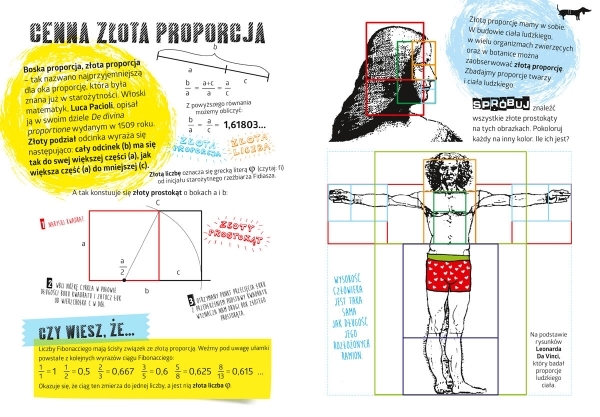 CENNA ZŁOTA PROPORCJA
Boska proporcja, złota proporcja
– tak nazwano najprzyjemniejszą
dla oka proporcję, która była
znana już w starożytności. Włoski
matematyk, Luca Pacioli, opisał
ją w swoim dziele De divina
proportione wydanym w 1509 roku.
Złoty podział odcinka wyraża się
następująco: cały odcinek (b) ma się
tak do swej większej części (a), jak
większa część (a) do mniejszej (c).
b
a
c
b/a = a+c/a = a/c
Z powyższego równania
możemy obliczyć:
b/a = a/c = 1,61803...
ZŁOTA PROPORCJA
ZŁOTA LICZBA
Złotą liczbę oznacza się grecką literą φ (czytaj: fi)
od inicjału starożytnego rzeźbiarza Fidiasza.
A tak konstuuje się złoty prostokąt o bokach a i b:
1 NARYSUJ KWADRAT
a
a/2
b
c
C
ZŁOTY PROSTOKĄT
2 WBIJ NÓŻKĘ CYRKLA W POŁOWIE
DŁUGOŚCI BOKU KWADRATU I ZATOCZ ŁUK
OD WIERZCHOŁKA C W DÓŁ
3 OTRZYMANY PUNKT PRZECIĘCIA ŁUKU
Z PRZEDŁUŻENIEM PODSTAWY KWADRATU
WYZNACZA NAM DRUGI BOK ZŁOTEGO
PROSTOKĄTA
CZY WIESZ, ŻE...
Liczby Fibonacciego mają ścisły związek ze złotą proporcją. Weźmy pod uwagę ułamki
powstałe z kolejnych wyrazów ciągu Fibonacciego:
1/1 = 1 1/2 = 0,5 2/3 = 0,667 3/5 = 0,6 5/8 = 0,625 8/13 = 0,615 ...
Okazuje się, że ciąg ten zmierza do jednej liczby, a jest nią złota liczba φ.
Złotą proporcję mamy w sobie.
W budowie ciała ludzkiego,
w wielu organizmach zwierzęcych
oraz w botanice można
zaobserwować złotą proporcję.
Zbadajmy proporcje twarzy
i ciała ludzkiego.
SPRÓBUJ znaleźć
wszystkie złote prostokąty
na tych obrazkach. Pokoloruj
każdy na inny kolor. Ile ich jest?
WYSOKOŚĆ
CZŁOWIEKA
JEST TAKA
SAMA
JAK DŁUGOŚĆ
JEGO
ROZŁOŻONYCH
RAMION.
Na podstawie
rysunków
Leonarda
Da Vinci,
który badał
proporcje
ludzkiego
ciała.